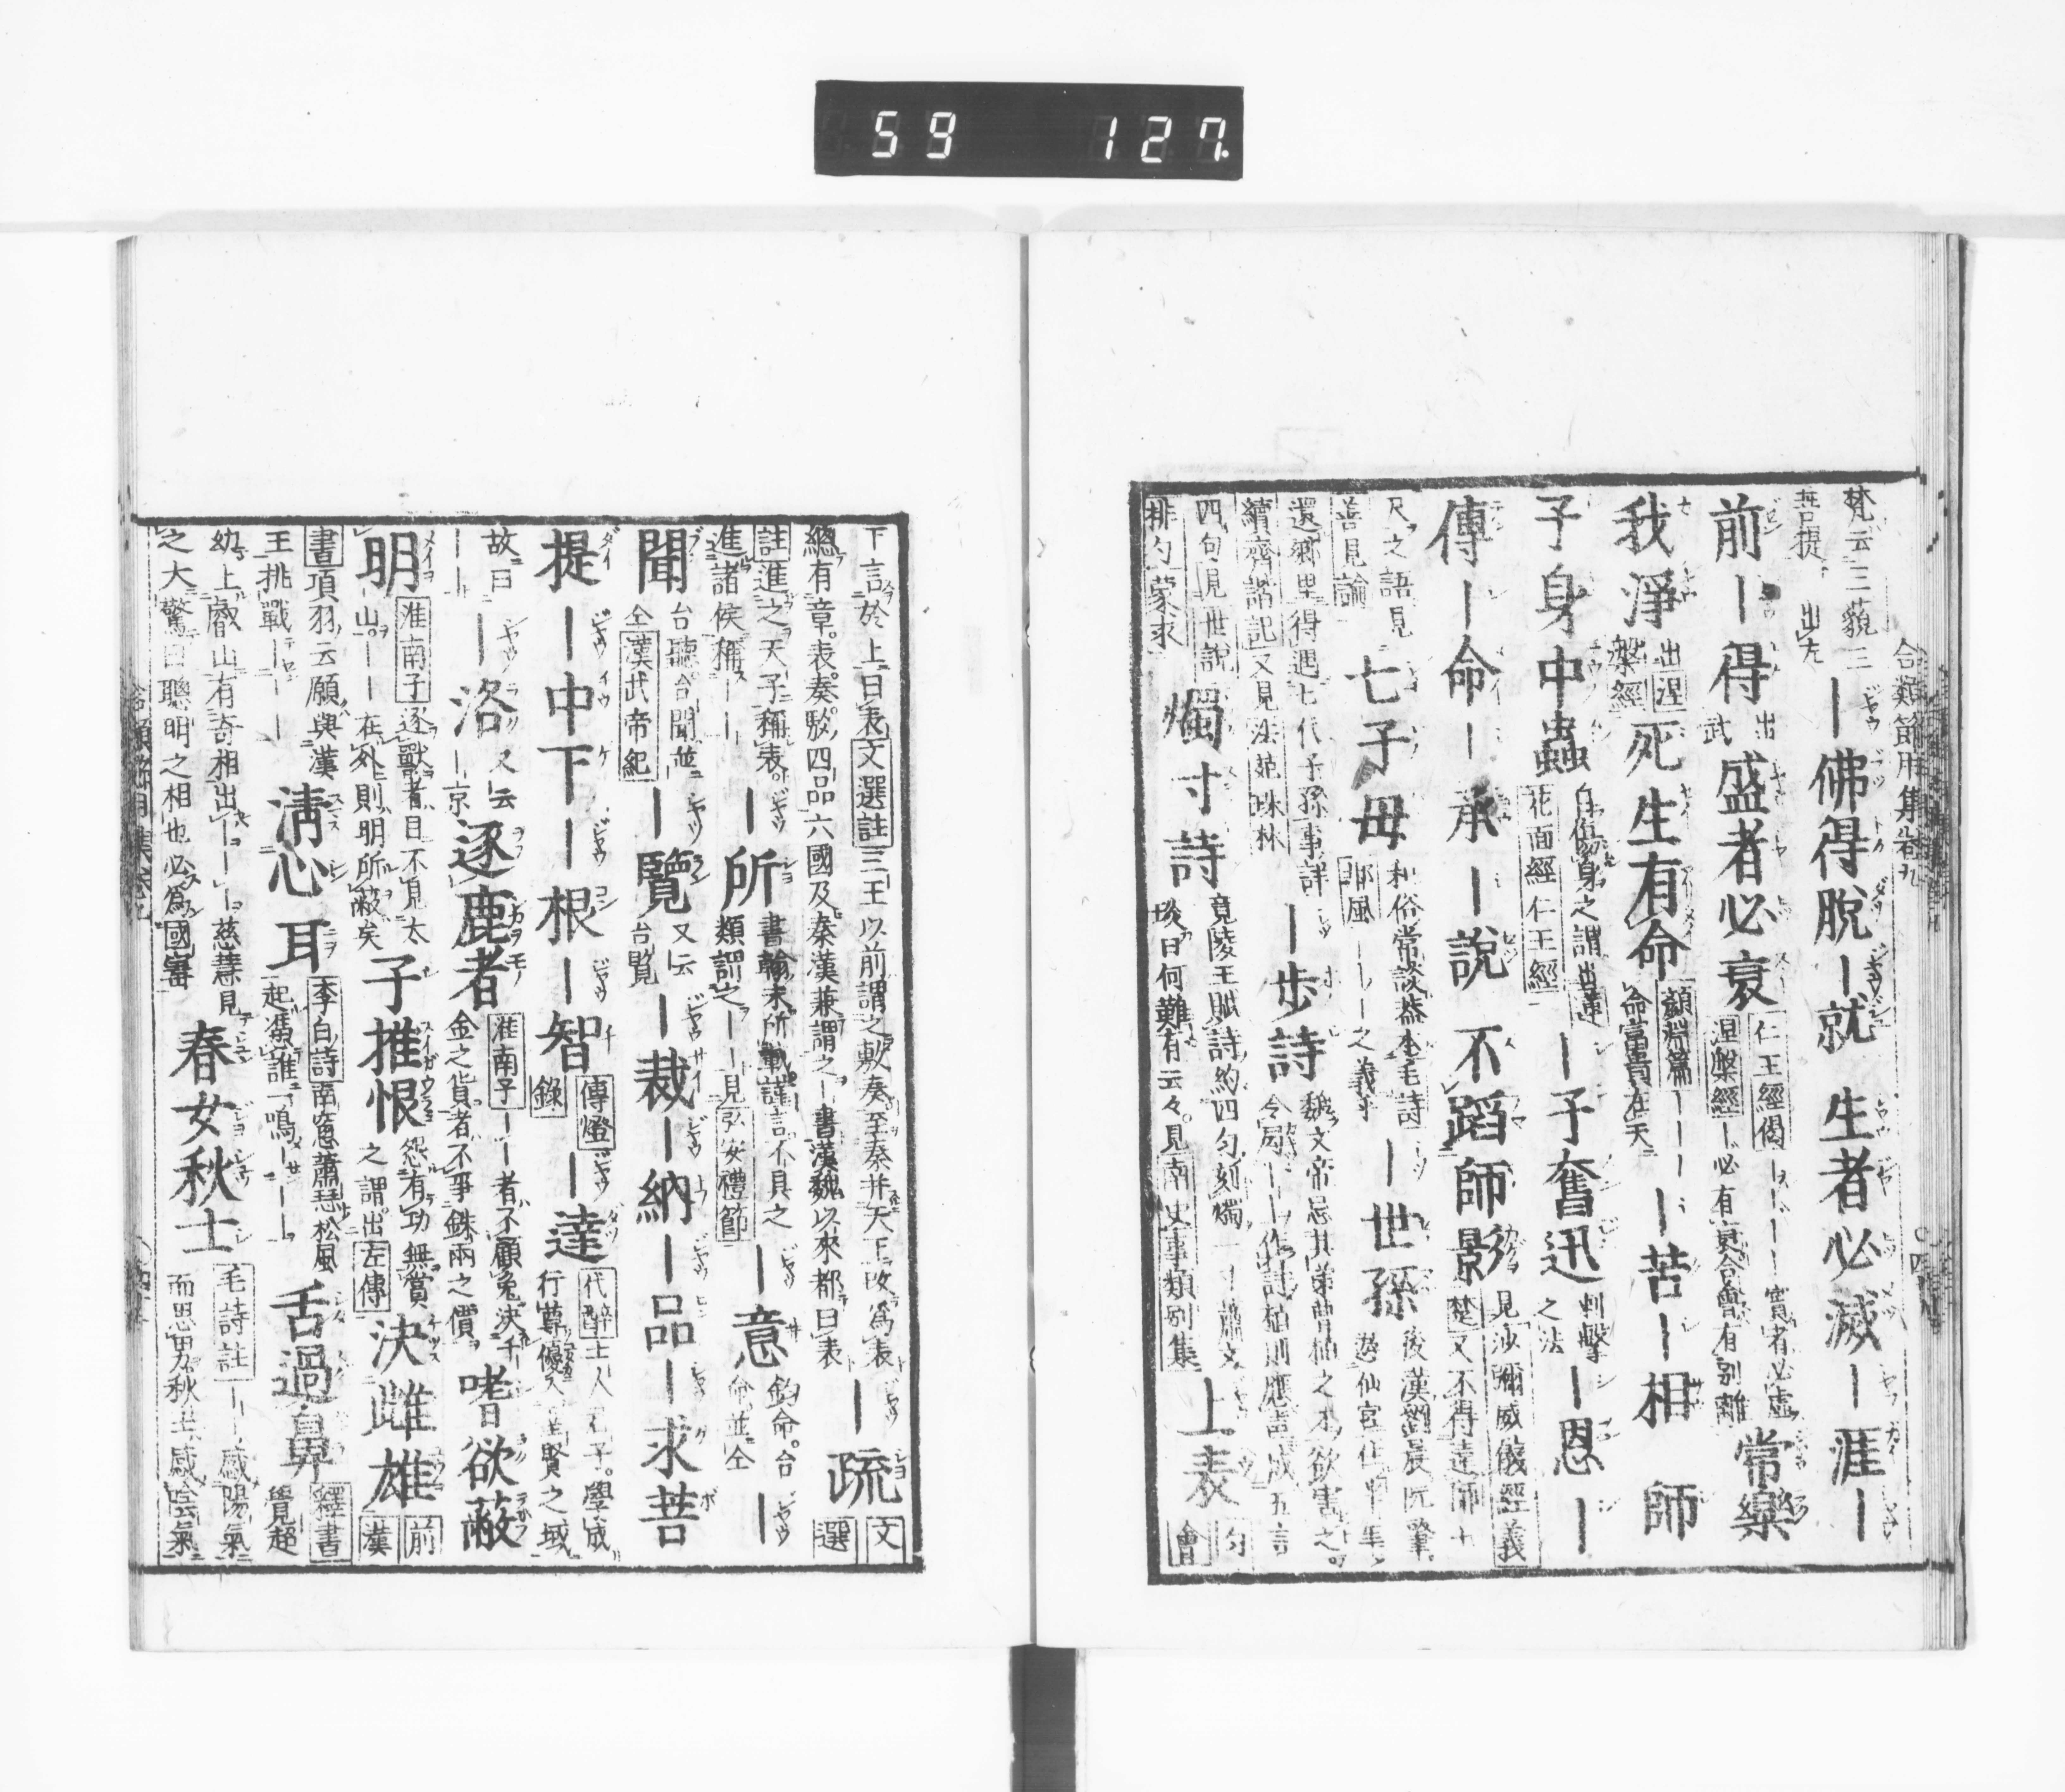 59 127
合類節用集卷九
梵云三藐三
菩提 出尢
―佛得脫―就 生者必滅―涯―
前―得 出武 盛者必衰 仁王經偈 ―――― 實者必虛 涅槃經 ―必有衰合會有別離 常樂
我淨 出涅槃經 死生有命 顏淵篇 ―――― 命富貴在天 ―苦―相 師
子身中蟲 自傷身之謂出蓮花面經仁王經 ―子奮迅 刺擊之法 ―恩―
傳―命―承―說 不蹈師影 見沙彌威儀經義楚又不得達師十
尺之語見善見論 七子母 和俗常談蓋本毛詩邶風――之義乎 ―世孫 後漢劉晨阮肇遊仙宮住半年
還鄉里得遇七代子孫事詳
續齊諧記又見法苑珠林 ―步詩 魏文帝忌其弟曹植之才欲害之
令曷――作詩植則應聲成五言
四句見世說
排勻蒙求 燭寸詩 竟陵王賦詩約四匀刻燭一寸蕭文
琰曰何難有云々見南史事類別集 上表 勻會
下言於上曰表文選註三王以前謂之敷奏至秦并天王改爲表
總有章表奏駁四品六國及秦漢兼謂之―書漢魏以來都曰表 ―疏 文選
註進之天子稱表
進諸侯稱―― ―所 書翰末所載謹言不具之
類謂之――見弘安禮節 ―意 鈞命台
命並仝 ―
聞 台聽台聞並
仝漢武帝紀 ―覽 又云台覧 ―裁―納―品―求菩
提―中下―根―智 傳燈錄 ―達 代醉士人君子學成
行尊優入聖賢之域
故曰―― ―洛 又云―京 逐鹿者 淮南子――者不顧兔決千
金之貨者不爭銖兩之價 嗜欲蔽
明 淮南子逐獸者目不見太
山――在外則明所蔽矣 子推恨 怨有功無賞
之謂出左傳 決雌雄 前漢
書項羽云願與漢
王挑戰――― 淸心耳 李白詩南窓蕭瑟松風
起憑誰一鳴――― 舌過鼻 繹書覺超
幼上叡山有奇相出――――慈慧見
之大驚曰聰明之相也必爲國寶 春女秋士 毛詩註――感陽氣
而思男秋士感陰氣